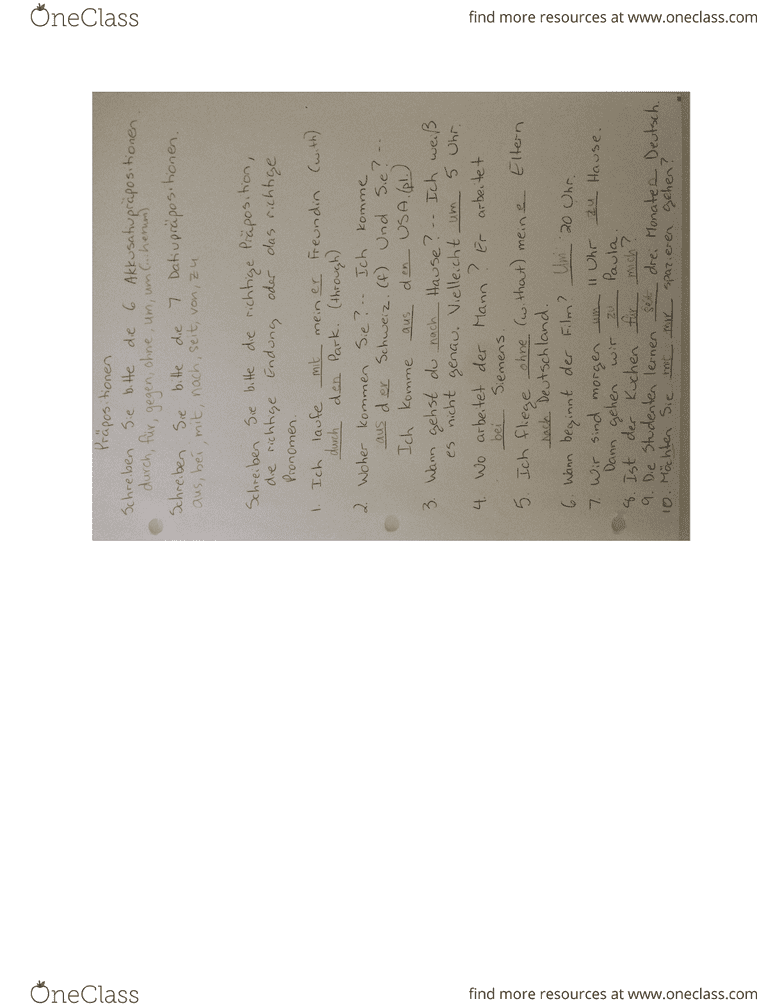 OneClass
find more resources at www.oneclass.com
Präpositionen
Schreiben Sie bitte die 6 Akkusativpräpositionen.
durch, für, gegen, ohne, um, um (...herum)
Schreiben Sie bitte die 7 Dativpräpositionen.
aus, bei, mit, nach, seit, von, zu
Schreiben Sie bitte die richtige Präposition,
die richtige Endung oder das richtige
Pronomen.
1. Ich laufe mit meiner Freundin (with)
durch den Park. (through)
2. Woher kommen Sie? -- Ich komme
aus der Schweiz. (f) Und Sie? --
Ich komme aus den USA. (pl.)
3. Wann gehst du nach Hause? -- Ich weiß
es nicht genau. Vielleicht um 5 Uhr.
4. Wo arbeitet der Mann? Er arbeitet
bei Siemens.
5. Ich fliege ohne (without) meine Eltern
nach Deutschland.
6. Wann beginnt der Film? Um 20 Uhr.
7. Wir sind morgen um 11 Uhr zu Hause.
Dann gehen wir zu Paula.
8. Ist der Kuchen für mich?
9. Die Studenten lernen seit drei Monaten Deutsch.
10. Möchten Sie mit mir spazieren gehen?
OneClass
find more resources at www.oneclass.com